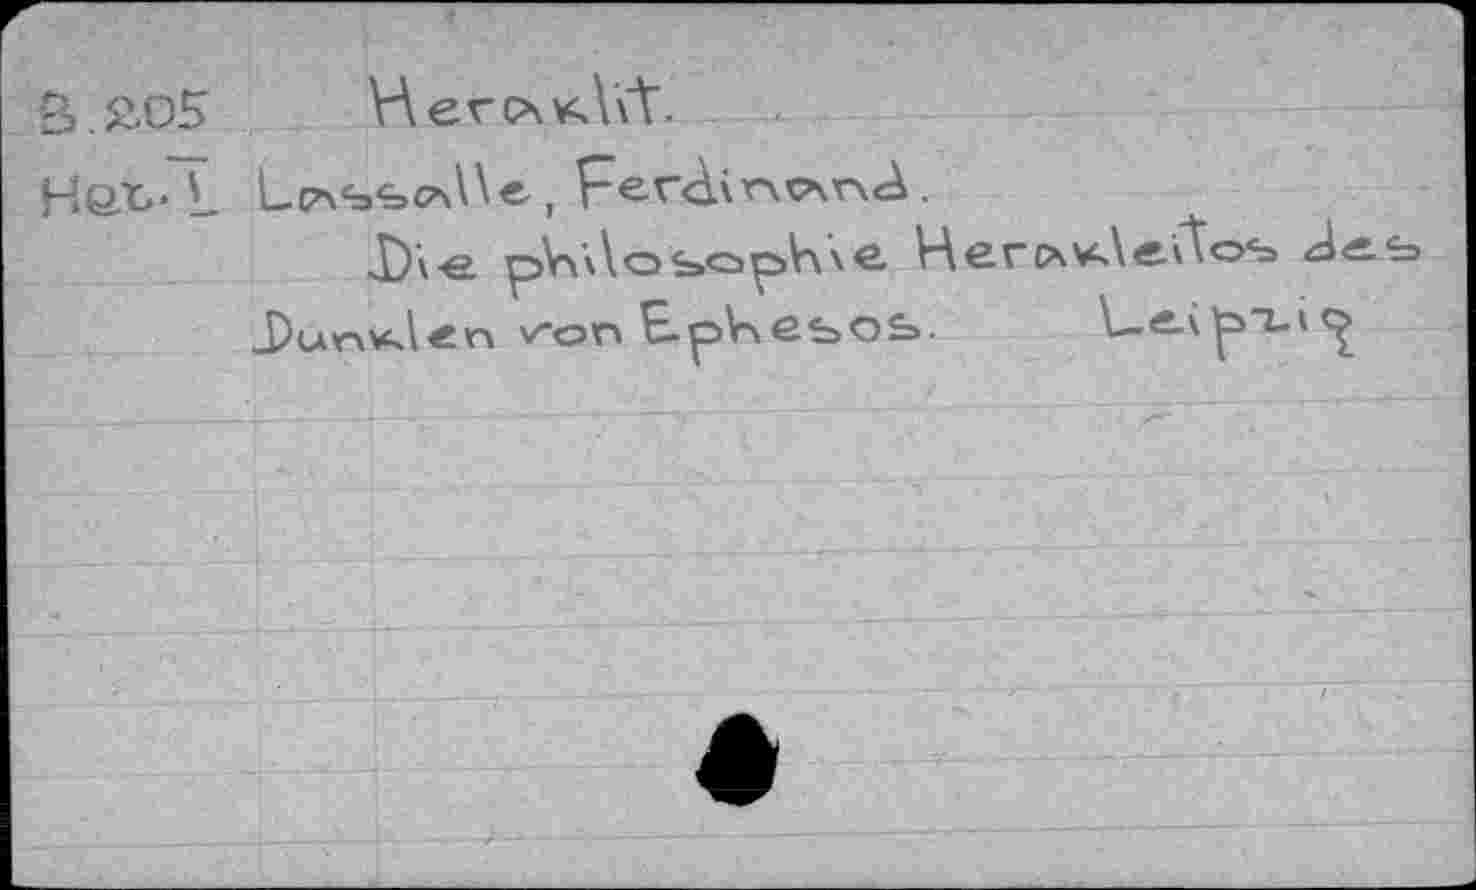 B.205 Heraklit.
Her. I Lassalle, Ferdinand.
Die philosophie Herakleitos des
Dunklen von Ephesos. Leipzig